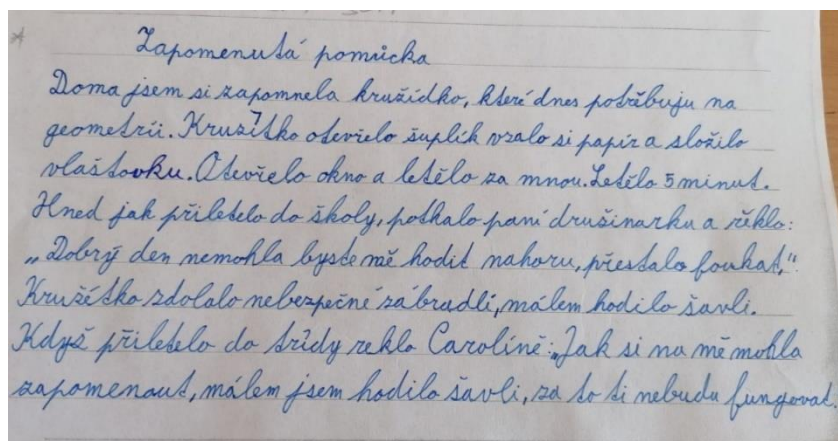 Zapomenutá pomůcka
Doma jsem si zapomnela kružídko, které dnes potřebuju na
geometrii. Kružítko otevřelo šuplík vzalo si papír a složilo
vlaštovku. Otevřelo okno a letělo za mnou. Letělo 5 minut.
Hned jak přiletelo do školy, potkalo paní drušinarku a řěklo:
„Dobrý den nemohla byste mě hodit nahoru, přestalo foukat,“
Kružétko zdolalo nebezpečné zábradlí, málem hodilo šavli.
Když přiletelo do třídy reklo Carolíně: „Jak si na mě mohla
zapomenout, málem jsem hodilo šavli, za to ti nebudu fungovat.